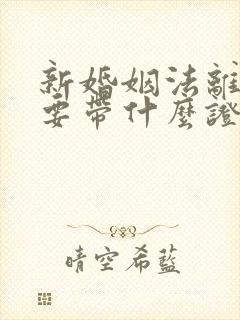 新婚姻法離
要帶什麼證
晴空希藍